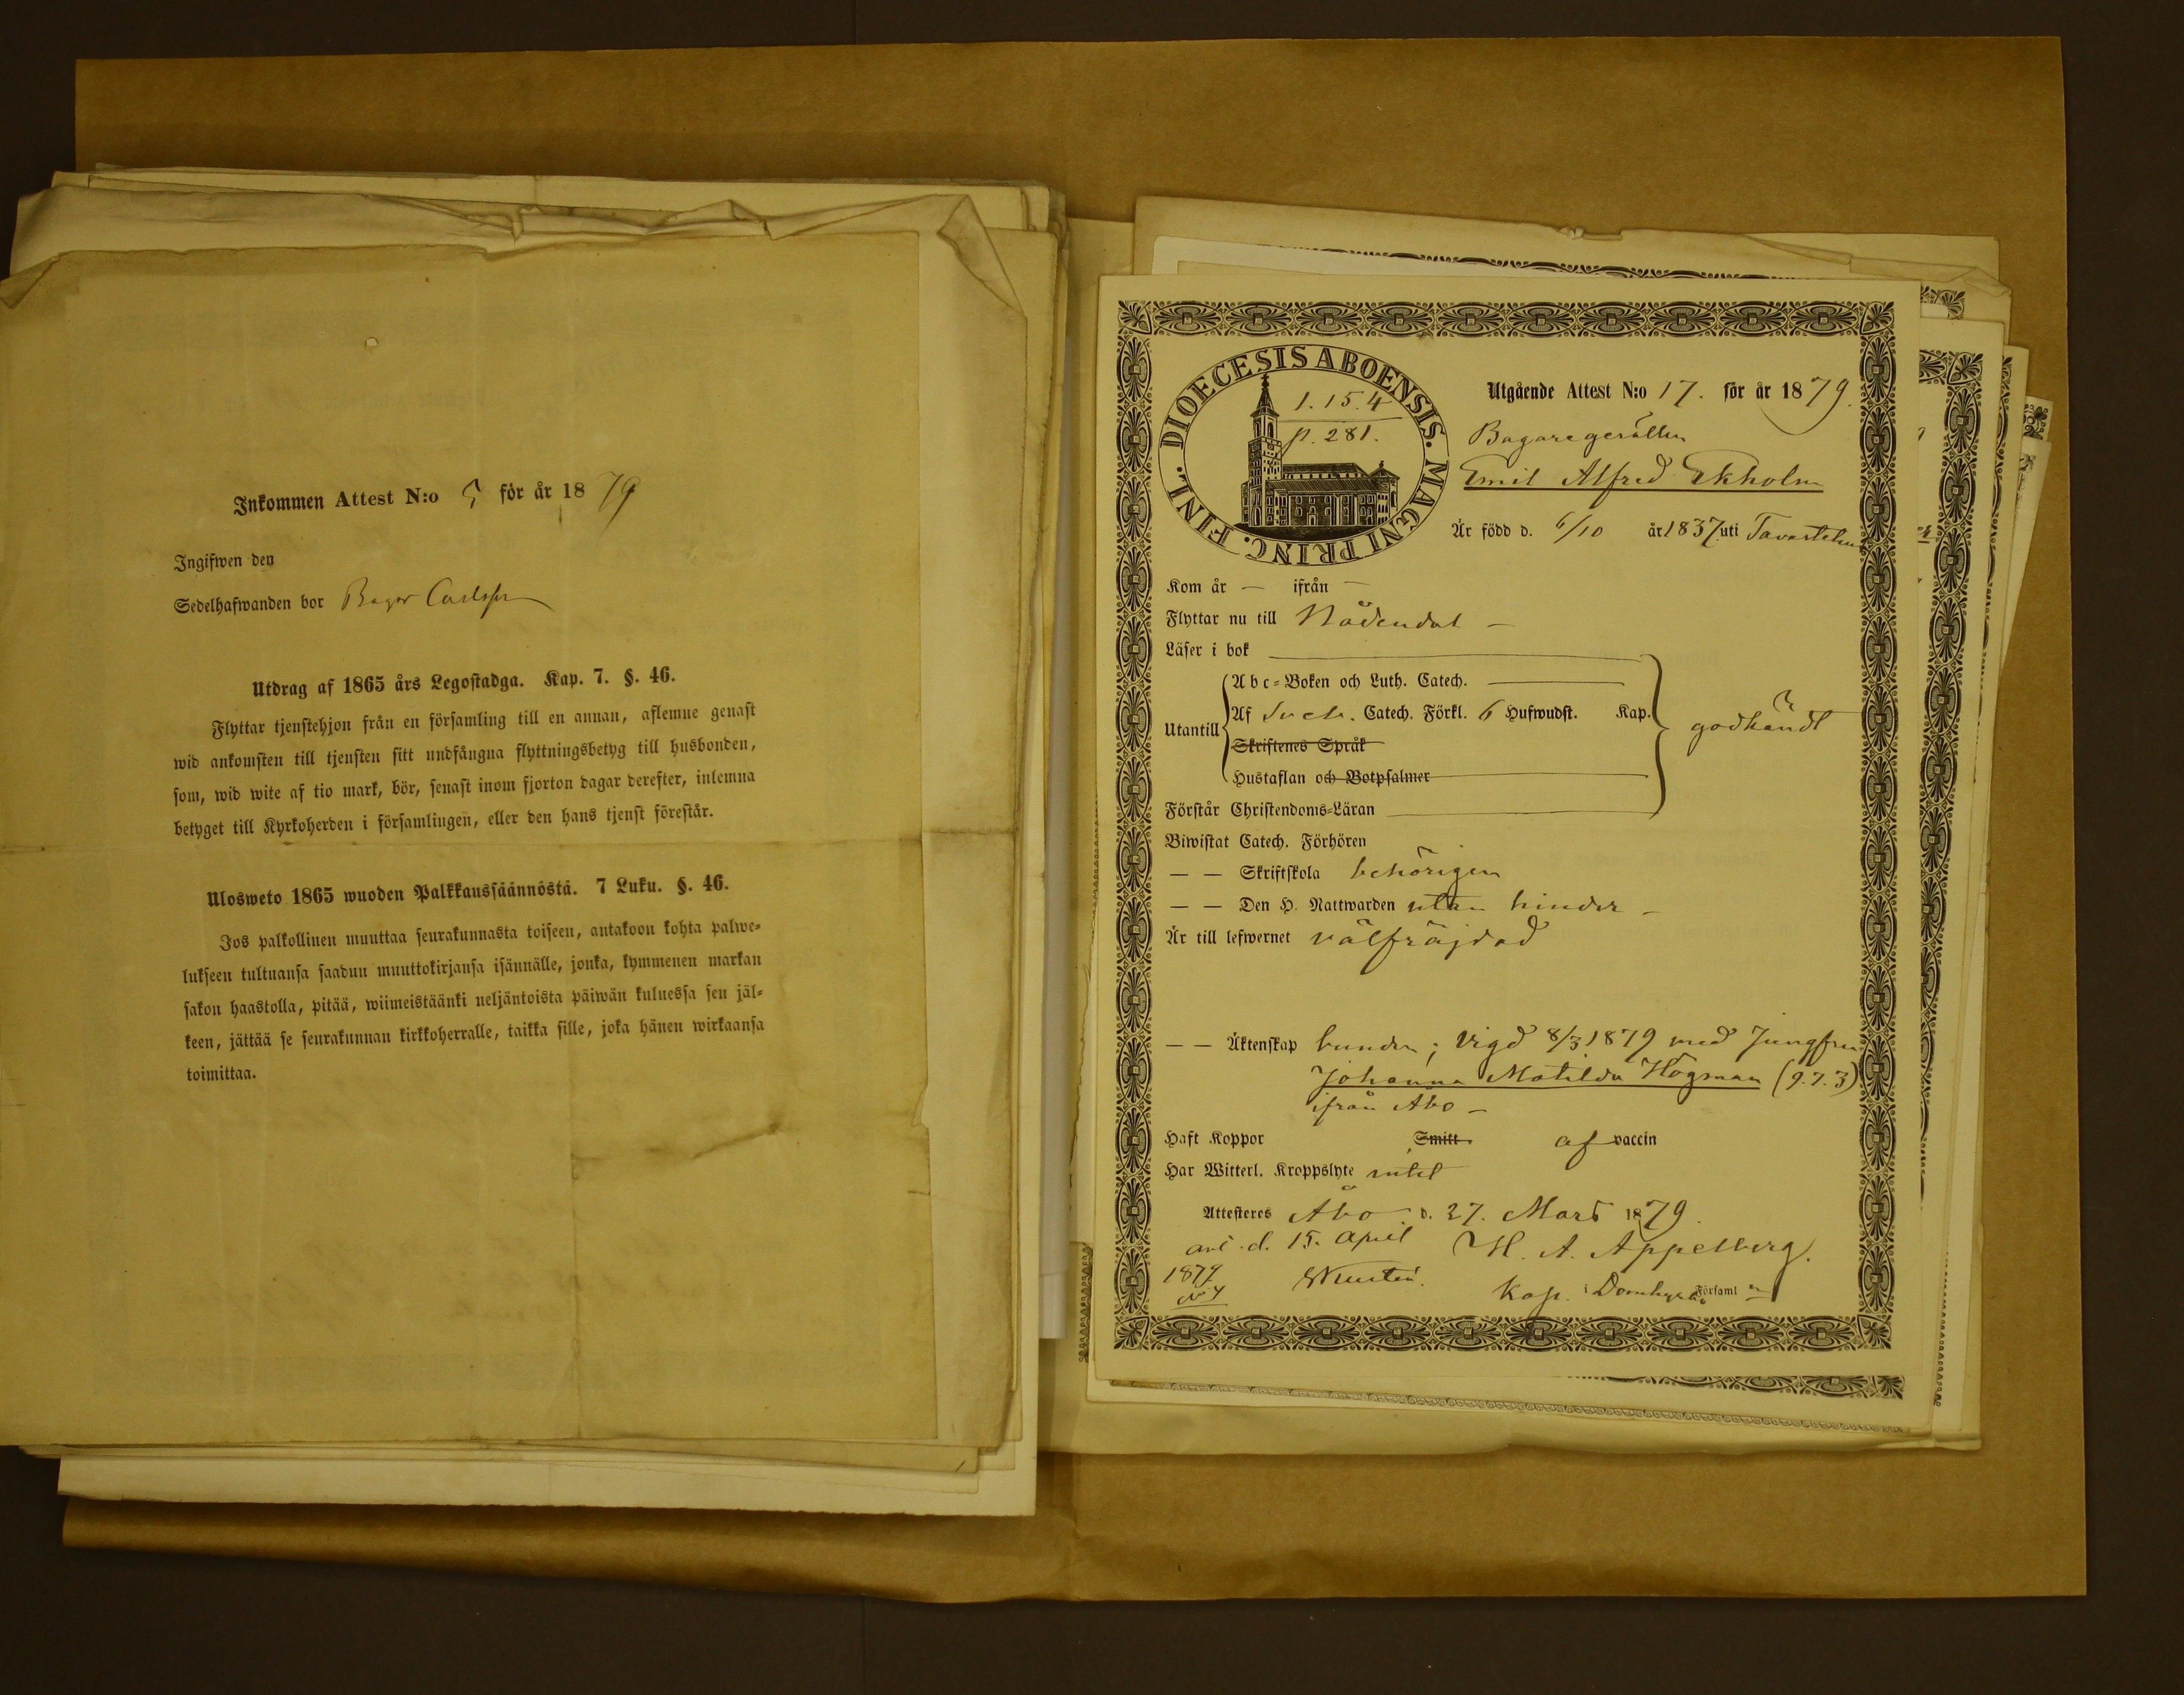 Inkommen Attest N:o 5 för år 1879
Ingifwen den
Sedelhafwanden bor Bagar Carlsson
Utdrag af 1865 års Legostadga. Kap. 7. §. 46.
Flyttar tjenstehjon från en församling till en annan, aflemne genast
wid ankomsten till tjensten sitt undfångna flyttningsbetyg till husbonden,
som, wid wite af tio mark, bör, senast inom fjorton dagar derefter, inlemna
betyget till Kyrkoherden i församlingen, eller den hans tjenst förestår.
Ulosweto 1865 wuoden Palkkaussäännöstä. 7 Luku. §. 46.
Jos palkollinen muuttaa seurakunnasta toiseen, antakoon kohta palwe=
lukseen tultuansa saadun muuttokirjansa isännälle, jonka, kymmenen markan
sakon haastolla, pitää, wiimeistäänki neljäntoista päiwän kuluessa sen jäl=
keen, jättää se seurakunnan kirkkoherralle, taikka sille, joka hänen wirkaansa
toimittaa.
DIOECESIS ABOENSIS. MAGNI PRINC. FINL.
1.15.4
p. 281.
Utgående Attest N:o 17. för år 1879.
Bagaregesällen
Emil Alfred Ekholm
Är född d. 6/10 år 1837 uti Tavastehus
Kom år — ifrån —
Flyttar nu till Nådendal —
Läser i bok
Utantill
Abc=Boken och Luth. Catech.
Af Sveb. Catech. Förkl. 6 Hufwudst. Kap.
Skriftenes Språk
Hustaflan och Botpsalmer
godkändt
Förstår Christendoms=Läran
Biwistat Catech. Förhören
— — Skriftskola behörigen
— — Den H. Nattwarden utan hinder —
Är till lefwernet välfräjdad
— — Äktenskap bunden; vigd 8/3 1879 med Jungfrun
Johanna Matilda Högman (9.7.3)
ifrån Åbo —
Haft Koppor Smitt af vaccin
Har Witterl. Kroppslyte intet
Attesteres Åbo d. 27. Mars 1879.
anl. d. 15. April H. A. Appelberg.
1879
N:o 4
Kap. i Domkyrko Församl n